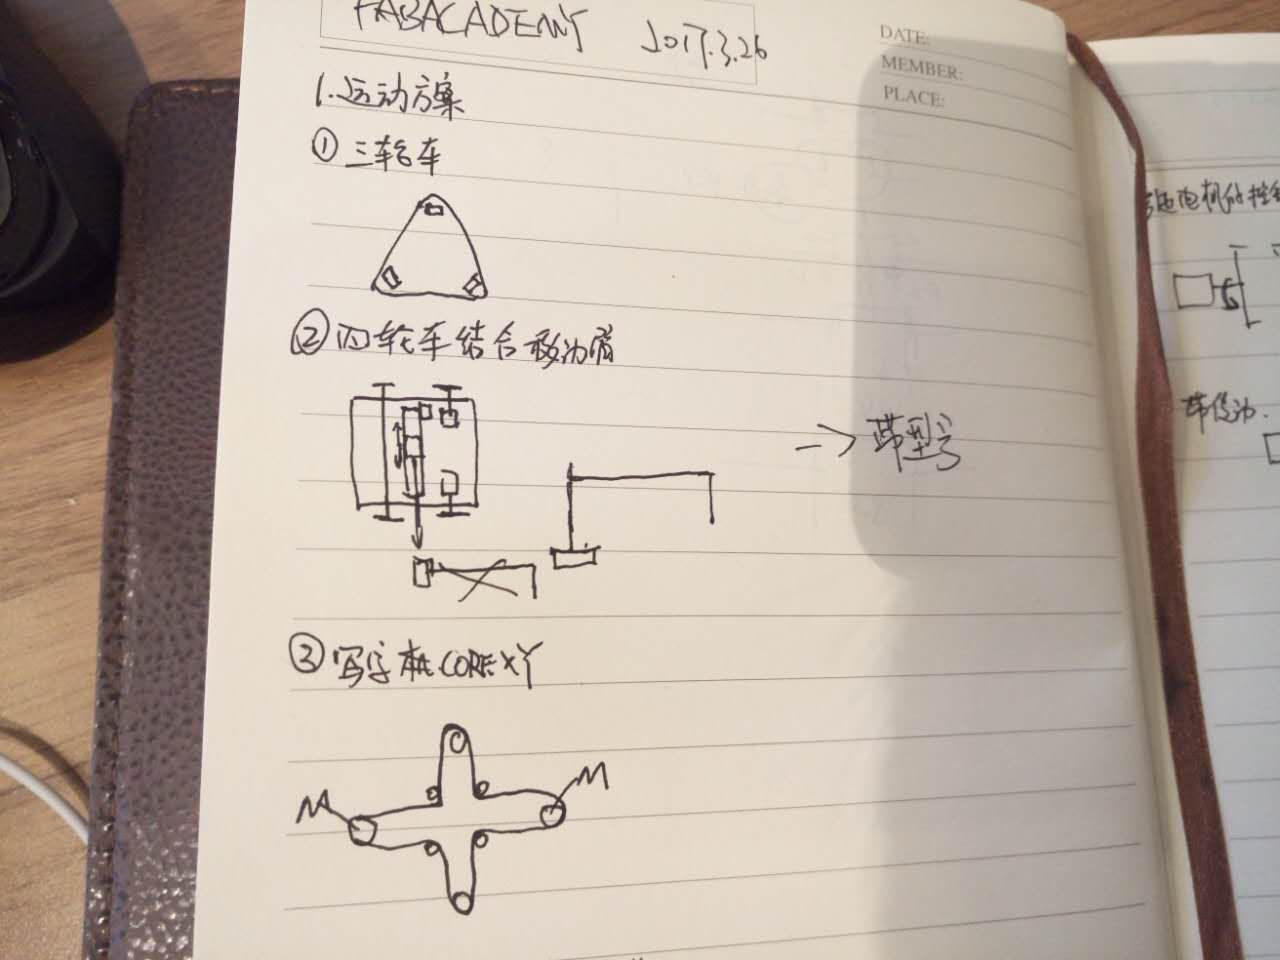 FABACADEMY 2017.3.26
DATE:
MEMBER:
PLACE:
1.运动方案
① 三轮车
② 四轮车结合移动臂
→ 带型号
③ 写字机 COREXY
M
M
电机的控制
带传动.